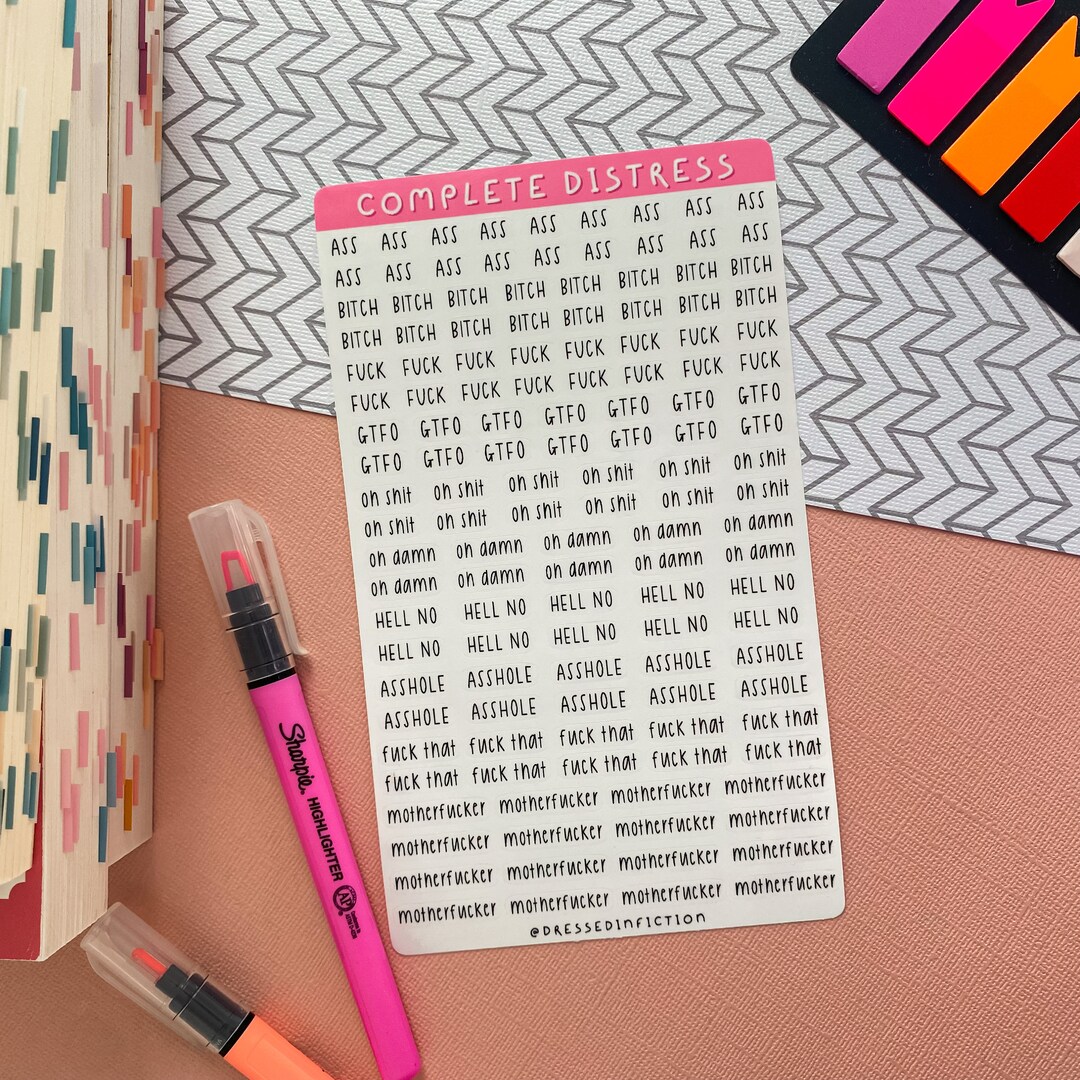 COMPLETE DISTRESS
ASS ASS ASS ASS ASS ASS ASS ASS ASS
ASS ASS ASS ASS ASS ASS ASS ASS ASS
BITCH BITCH BITCH BITCH BITCH BITCH BITCH BITCH
BITCH BITCH BITCH BITCH BITCH BITCH BITCH BITCH
FUCK FUCK FUCK FUCK FUCK FUCK FUCK FUCK
FUCK FUCK FUCK FUCK FUCK FUCK FUCK FUCK
GTFO GTFO GTFO GTFO GTFO GTFO GTFO
GTFO GTFO GTFO GTFO GTFO GTFO GTFO
oh shit oh shit oh shit oh shit oh shit oh shit
oh shit oh shit oh shit oh shit oh shit oh shit
oh damn oh damn oh damn oh damn oh damn
oh damn oh damn oh damn oh damn oh damn
HELL NO HELL NO HELL NO HELL NO HELL NO
HELL NO HELL NO HELL NO HELL NO HELL NO
ASSHOLE ASSHOLE ASSHOLE ASSHOLE ASSHOLE
ASSHOLE ASSHOLE ASSHOLE ASSHOLE ASSHOLE
fuck that fuck that fuck that fuck that fuck that
fuck that fuck that fuck that fuck that fuck that
motherfucker motherfucker motherfucker motherfucker
motherfucker motherfucker motherfucker motherfucker
motherfucker motherfucker motherfucker motherfucker
motherfucker motherfucker motherfucker motherfucker
@DRESSEDINFICTION
Sharpie. HIGHLIGHTER AP